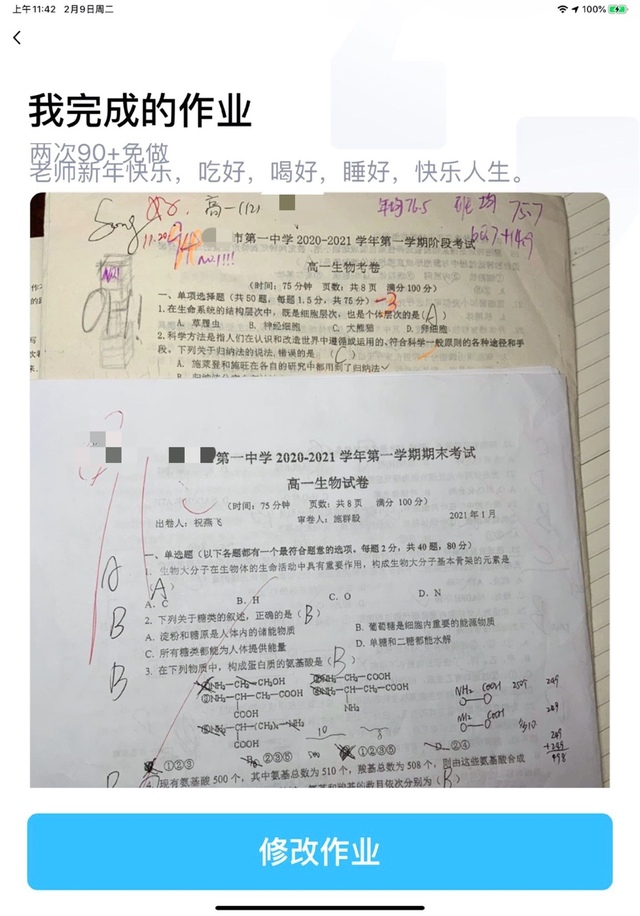 上午11:42 2月9日周二
100%
我完成的作业
两次90+免做
老师新年快乐，吃好，喝好，睡好，快乐人生。
Song 高一(12) 年均76.5 班均 75.7
11.20 94 60.7+14.9
市第一中学 2020-2021 学年第一学期阶段考试
No.1!!!
高一生物考卷
No.1
(时间: 75 分钟 页数: 共 8 页 满分 100 分)
OH!
一、单项选择题（共 50 题，每题 1.5 分，共 75 分） -3
1.在生命系统的结构层次中，既是细胞层次，也是个体层次的是(A)
A. 草履虫 B. 神经细胞 C. 大熊猫 D. 卵细胞
2.科学方法是指人们在认识和改造世界中遵循或运用的、符合科学一般原则的各种途径和手
段。下列关于归纳法的说法，错误的是 (C)
A. 施莱登和施旺在各自的研究中都用到了归纳法
91
第一中学 2020-2021 学年第一学期期末考试
高一生物试卷
(时间: 75 分钟 页数: 共 8 页 满分 100 分)
出卷人：祝燕飞 审卷人：施群毅 2021 年 1 月
一、单选题（以下各题都有一个最符合题意的选项。每题 2 分，共 40 题，80 分）
1. 生物大分子在生物体的生命活动中具有重要作用，构成生物大分子基本骨架的元素是
A
(A)
A. C B. H C. O D. N
B
2. 下列关于糖类的叙述，正确的是(B)
A. 淀粉和糖原是人体内的储能物质 B. 葡萄糖是细胞内重要的能源物质
C. 所有糖类都能为人体提供能量 D. 单糖和二糖都能水解
B
3. 在下列物质中，构成蛋白质的氨基酸是(B)
①NH₂—CH₂—CH₂OH
②NH₂—CH—CH₂—COOH
COOH
NH₂
COOH
NH₂ COOH
NH₂ COOH
10
500
249
+249
498
①②③ ②③⑤ ①②③⑤ ②④
B
4. 现有氨基酸 500 个，其中氨基总数为 510 个，羧基总数为 508 个，则由这些氨基酸合成
氨基和羧基的数目依次分别为(B)
修改作业